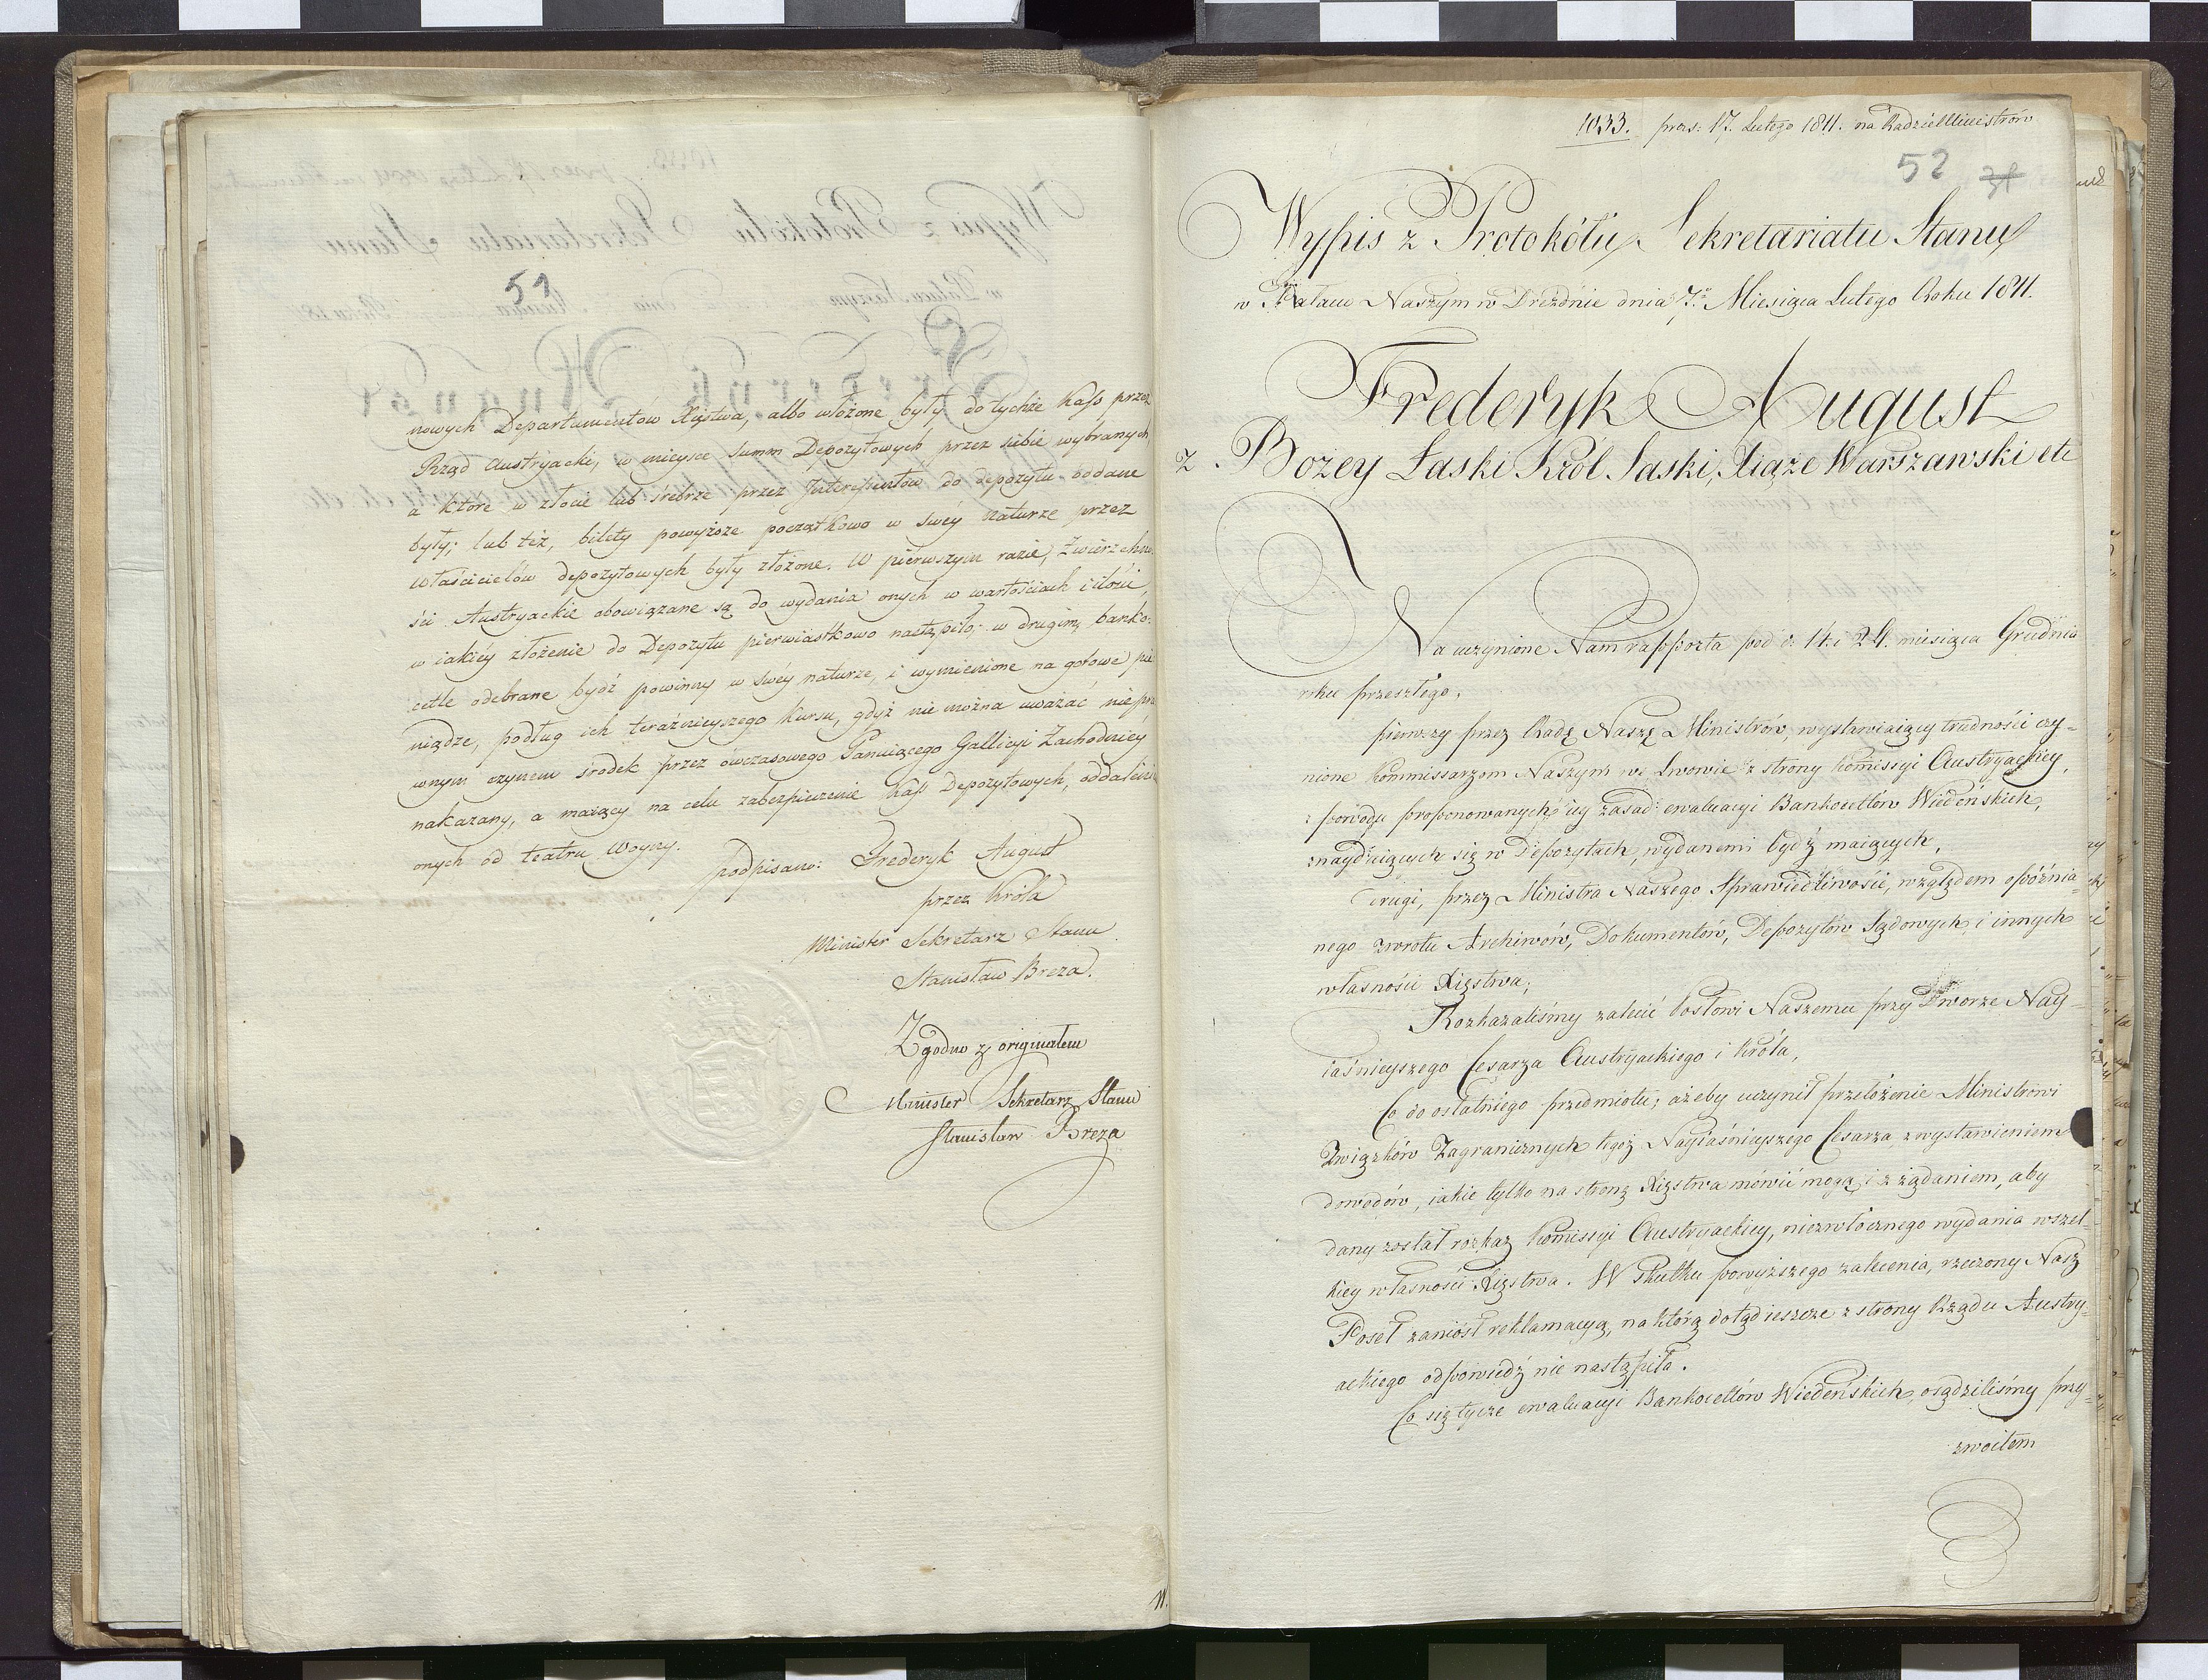 51
nowych Departamentow Xięstwa, albo włożone były, do tychże Kass przez
Rząd Austryacki, w mieysce Summ Depozytowych przez siebie wybranych
a które w złocie lub śrebrze przez Interessentów do depozytu oddane
były; lub też, bilety powyższe początkowo w swéy naturze przez
właścicielów depozytowych były złożone. W pierwszym razie, Zwierzchno
ści Austryackie obowiązane są do wydania onych w wartościach i ilości,
w iakiéy złożenie do Depozytu pierwiastkowo nastąpiło; w drugim, banko-
cetle odebrane bydź powinny w swéy naturze, i wymienione na gotowe pie
niądze, podług ich teraźnieyszego kursu, gdyż nie można uważać nie pra
wnym czynem środek przez ówczasowego Panuiącego Gallicyi Zachodniey
nakazany, a maiący na celu zabezpieczenie Kass Depozytowych, oddalenie
onych od teatru Woyny.
podpisano: Frederyk August
przez Króla
Minister Sekretarz Stanu
Stanisław Breza.
Zgodno z originałem
Minister Sekretarz Stanu
Stanisław Breza
11.
1033. prez: 17. Lutego 1811. na Radzie Ministrów
52 31
Wypis z Protokółu Sekretariatu Stanu
w Pałacu Naszym w Dreźnie dnia 7.º Miesiąca Lutego Roku 1811.
Frederyk August
z Bożey Łaski Król Saski, Xiąże Warszawski etc
Na uczynione Nam rapporta pod d: 14. i 24. miesiąca Grudnia
roku przeszłego,
pierwszy przez Radę Naszę Ministrów, wystawiaiący trudności czy-
nione Kommissarzom Naszym we Lwowie z strony Kommissyi Austryackiey,
z powodu proponowanych iey zasad ewaluacyi Bankocetlów Wiedeńskich,
znayduiących się w Depozytach, wydanemi bydź maiących,
drugi, przez Ministra Naszego Sprawiedliwości, względem opóźnia-
nego zwrotu Archiwów, Dokumentów, Depozytów Sądowych, i innych
własności Xięstwa;
Rozkazaliśmy zalecić Posłowi Naszemu przy Dworze Nay-
iaśnieyszego Cesarza Austryackiego i Króla,
Co do ostatniego przedmiotu; ażeby uczynił przełożenie Ministrowi
Związków Zagranicznych tegoż Nayiaśnieyszego Cesarza z wystawieniem
dowodów, iakie tylko na stronę Xięstwa mówić mogą, i z żądaniem, aby
dany został rozkaz Kommissyi Austryackiey, niezwłocznego wydania wszel-
kiey własności Xięstwa. W skutku powyższego zalecenia, rzeczony Nasz
Poseł zaniósł reklamacyą, na którą dotąd ieszcze z strony Rządu Austry-
ackiego odpowiedź nie nastąpiła.
Co się tycze ewaluacyi Bankocetlów Wiedeńskich, osądziliśmy przy-
zwoitem